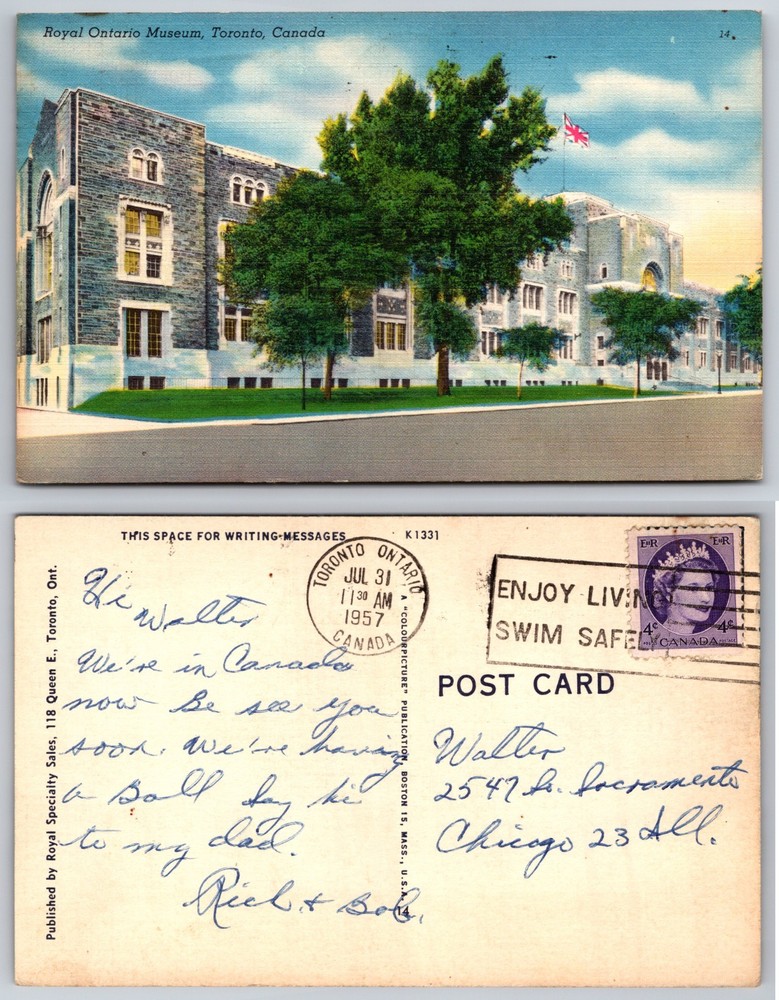 Royal Ontario Museum, Toronto, Canada
14
THIS SPACE FOR WRITING MESSAGES
K1331
TORONTO ONTARIO
JUL 31
11 30 AM
1957
CANADA
ENJOY LIVIN
SWIM SAFE
E II R
E II R
4¢
4¢
CANADA
POST CARD
Published by Royal Specialty Sales, 118 Queen E., Toronto, Ont.
A "COLOURPICTURE" PUBLICATION, BOSTON 15, MASS., U.S.A.
14
Hi
Walter
We're in Canada
now Be see you
soon. We're having
a Ball Say hi
to my dad.
Rich & Bob.
Walter
2547 So. Sacramento
Chicago 23 Ill.